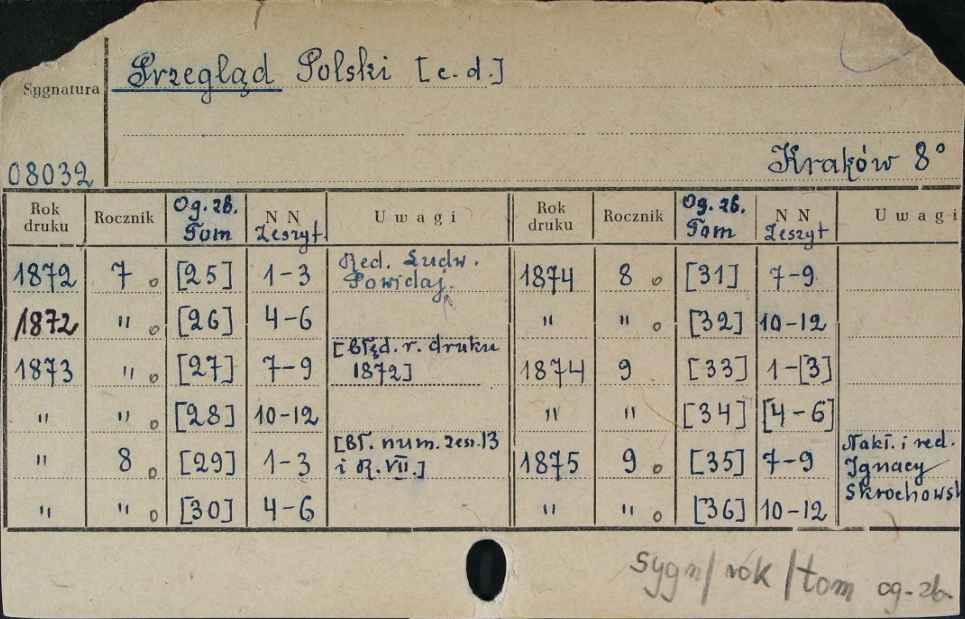 Przegląd Polski [c. d.]
Sygnatura
08032
Kraków 8°
Rok druku Rocznik Og. zb. Tom N N Zeszyt Uwagi Rok druku Rocznik Og. zb. Tom N N Zeszyt Uwagi
1872 7 o [25] 1-3 Red. Ludw. Powidaj. 1874 8 o [31] 7-9
1872 " o [26] 4-6 " " o [32] 10-12
1873 " o [27] 7-9 [Błęd. r. druku 1872] 1874 9 [33] 1-[3]
" " o [28] 10-12 " " [34] [4-6]
" 8 o [29] 1-3 [Bł. num. zesz. 13 i R. VII.] 1875 9 o [35] 7-9 Nakł. i red. Ignacy Skrochows
" " o [30] 4-6 " " o [36] 10-12
sygn/rok/tom og-zb.